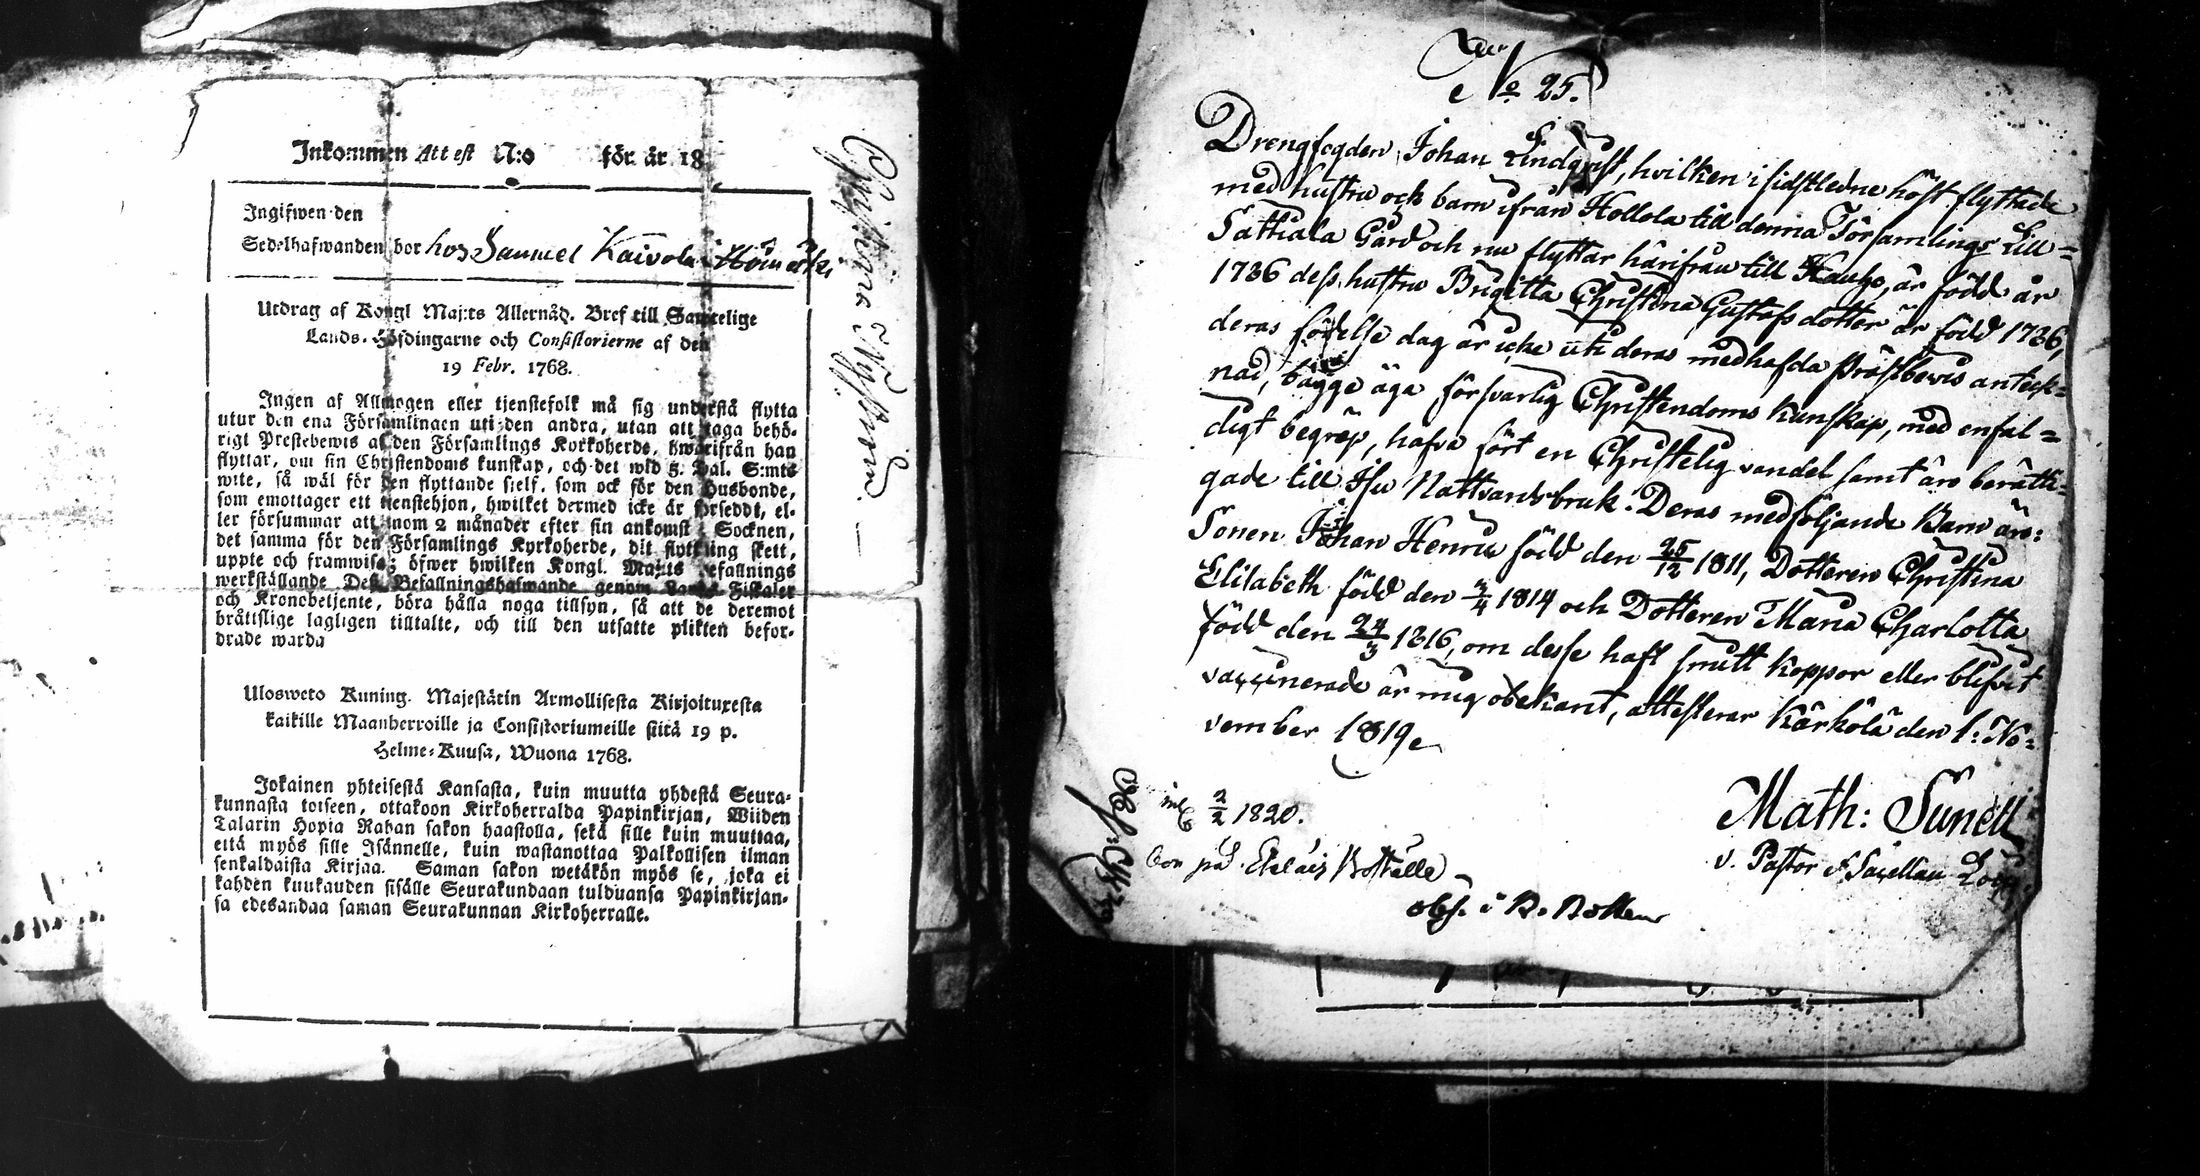 Inkommen Attest N:o för år 18
Ingifwen den
Sedelhafwanden bor hos Samuel Kaivola i
Utdrag af Kongl Maj:ts Allernåd. Bref till Samtelige
Lands-Höfdingarne och Consistorierne af den
19 Febr. 1768.
Ingen af Allmogen eller tjenstefolk må sig understå flytta
utur den ena Församlingen uti den andra, utan att taga behö-
rigt Prestebewis af den Församlings Kyrkoherde, hwarifrån han
flyttar, om sin Christendoms kunskap, och det wid 5. Dal. S:mts
wite, så wäl för den flyttande sielf, som ock för den Husbonde,
som emottager ett tienstehjon, hwilket dermed icke är försedt, el-
ler försummar att inom 2 månader efter sin ankomst i Socknen,
det samma för den Församlings Kyrkoherde, dit flyttning skett,
uppte och framwisa; öfwer hwilken Kongl. Maj:ts befallnings
werkställande Dess Befallningshafwande genom Lands-Fiskaler
och Kronobetjente, böra hålla noga tillsyn, så att de deremot
bråttslige lagligen tilltalte, och till den utsatte plikten befor-
drade warda
Ulosweto Kuning. Majestätin Armollisesta Kirjoituxesta
kaikille Maanherroille ja Consistoriumeille siitä 19 p.
Helme-Kuusa, Wuona 1768.
Jokainen yhteisestä Kansasta, kuin muutta yhdestä Seura-
kunnasta toiseen, ottakoon Kirkoherralda Papinkirjan, Wiiden
Talarin Hopia Rahan sakon haastolla, sekä sille kuin muuttaa,
että myös sille Isännelle, kuin wastanottaa Palkollisen ilman
senkaldaista Kirjaa. Saman sakon wetäkön myös se, joka ei
kahden kuukauden sisälle Seurakundaan tulduansa Papinkirjan-
sa edesandaa saman Seurakunnan Kirkoherralle.
No 25.
Drengfogden Johan Lindqvist, hvilken i sidstledne höst flyttade
med hustru och barn ifrån Hollola till denna Församlings Lill=
Sattiala Gård och nu flyttar härifrån till Hauho, är född år
1786 dess hustru Brigitta Christina Gustafsdotter är född 1786,
deras födelse dag är icke uti deras medhafda Prästbevis anteck=
nad, bägge äga försvarlig Christendoms kunskap, med enfal=
digt begrep, hafva fört en Christelig vandel samt äro berätti=
gade till Hsu Nattvardsbruk. Deras medföljande Barn äro:
Sonen Johan Henric född den 25/12 1811, Dotteren Christina
Elisabeth född den 3/4 1814 och Dotteren Maria Charlotta
född den 24/3 1816, om desse haft smitt koppor eller blifvit
vaccinerade är mig obekant, attesterar Kärkölä den 1: No=
vember 1819
Math: Sunell
v. Pastor & Sacellan Loci
2/2 1820.